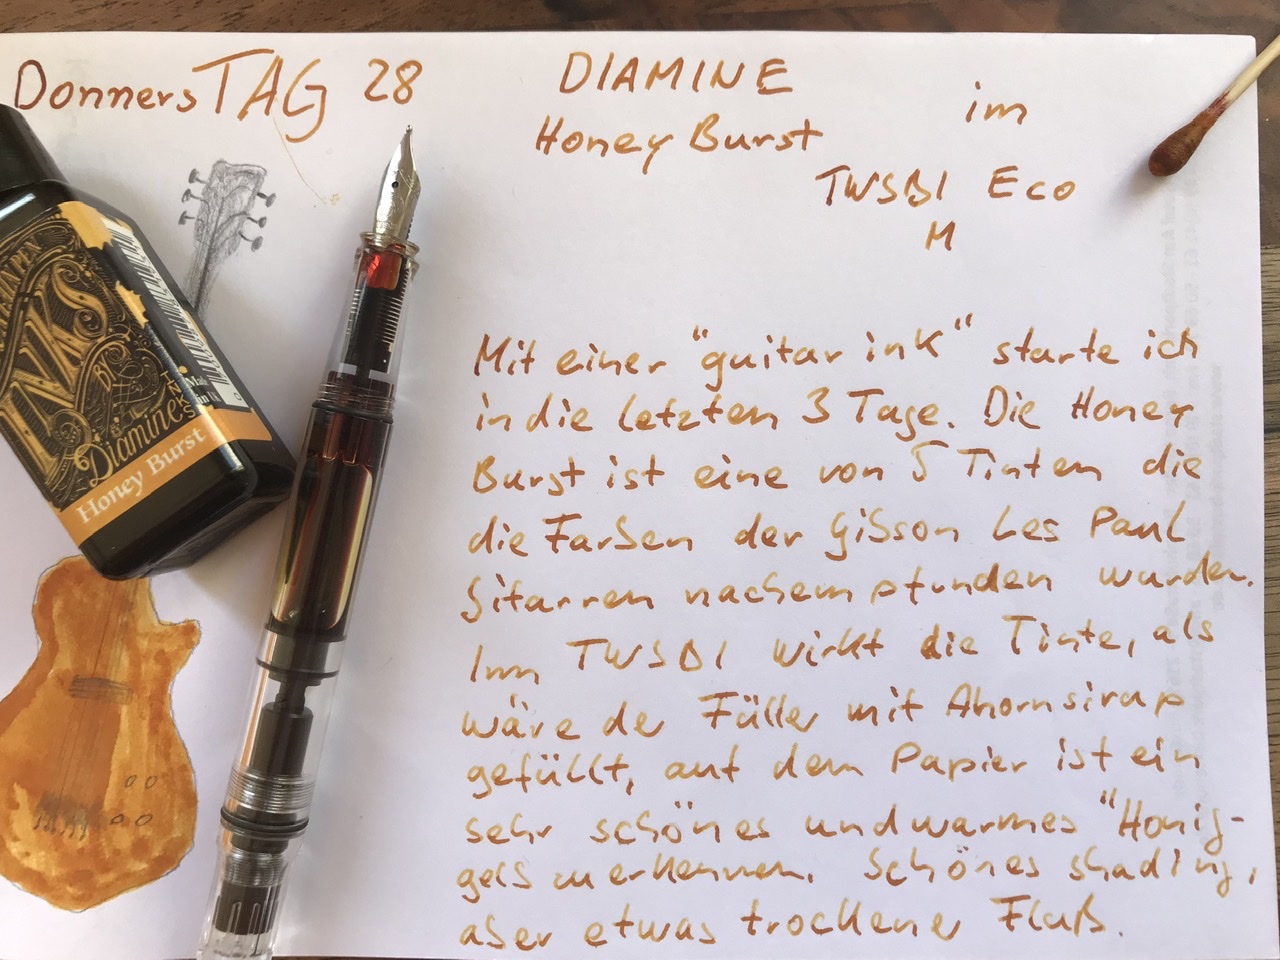 DonnersTAG 28
DIAMINE
Honey Burst
im
TWSBI Eco
M
INKS
Diamine
INKS
Made
in
Honey Burst
Mit einer "guitar ink" starte ich
in die letzten 3 Tage. Die Honey
Burst ist eine von 5 Tinten die
die Farben der Gibson Les Paul
Gitarren nachempfunden wurden.
Im TWSBI wirkt die Tinte, als
wäre der Füller mit Ahornsirap
gefüllt, auf dem Papier ist ein
sehr schönes und warmes "Honig-
gelb zu erkennen. Schönes shading,
aber etwas trockener Fluß.